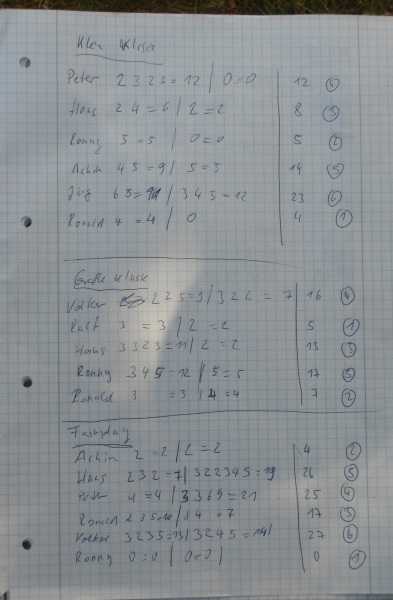 Klen Klasse
Peter 2 3 2 5 = 12 | 0 = 0 12 4
Hans 2 4 = 6 | 2 = 2 8 3
Ronny 5 = 5 | 0 = 0 5 2
Achim 4 5 = 9 | 5 = 5 14 5
Jörg 6 5 = 11 | 3 4 5 = 12 23 6
Ronald 4 = 4 | 0 4 1
Große Klasse
Volker 2 2 5 = 9 | 3 2 2 = 7 16 4
Ralf 3 = 3 | 2 = 2 5 1
Hans 3 3 2 3 = 11 | 2 = 2 13 3
Ronny 3 4 5 = 12 | 5 = 5 17 5
Ronald 3 = 3 | 4 = 4 7 2
Achim 2 = 2 | 2 = 2 4 2
Hans 2 3 2 = 7 | 3 2 2 3 4 5 = 19 26 5
4 = 4 | 3 3 6 9 = 21 25 4
Ronald 2 3 5 = 10 | 3 4 = 7 17 3
Volker 3 2 3 5 = 13 | 3 2 4 5 = 14 27 6
Ronny 0 = 0 | 0 = 0 | 0 1